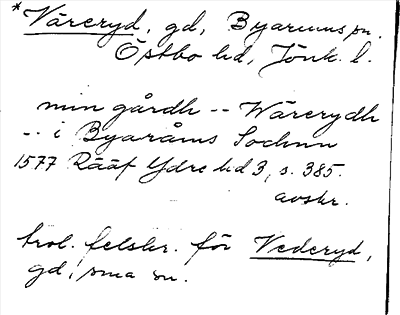 *Väreryd, gd, Byarums sn.
Östbo hd, Jönk. l.
min gårdh -- Wärerydh
-- i Byaråms Sochnn
1577 Rääf Ydre hd 3, s. 385.
avskr.
trol. felskr. för Vederyd,
gd, sma sn.